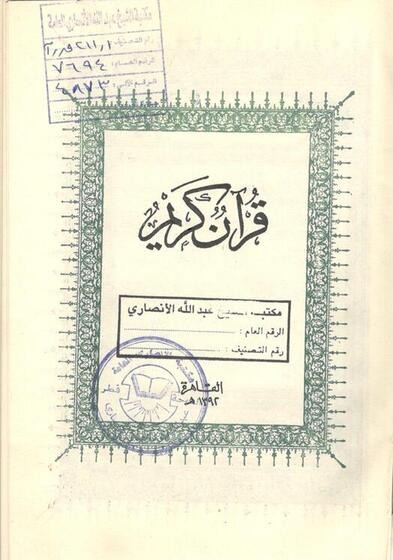 مكتبة الشيخ عبد الله الأنصاري العامة
رقم التصنيف
الرقم العام: ٧٦٩٤
٤٨٧٣
قُرآنٌ كَرِيمٌ
مكتبة الشيخ عبد الله الأنصاري
الرقم العام :
رقم التصنيف :
قطر
القاهرة
١٣٩٢هـ